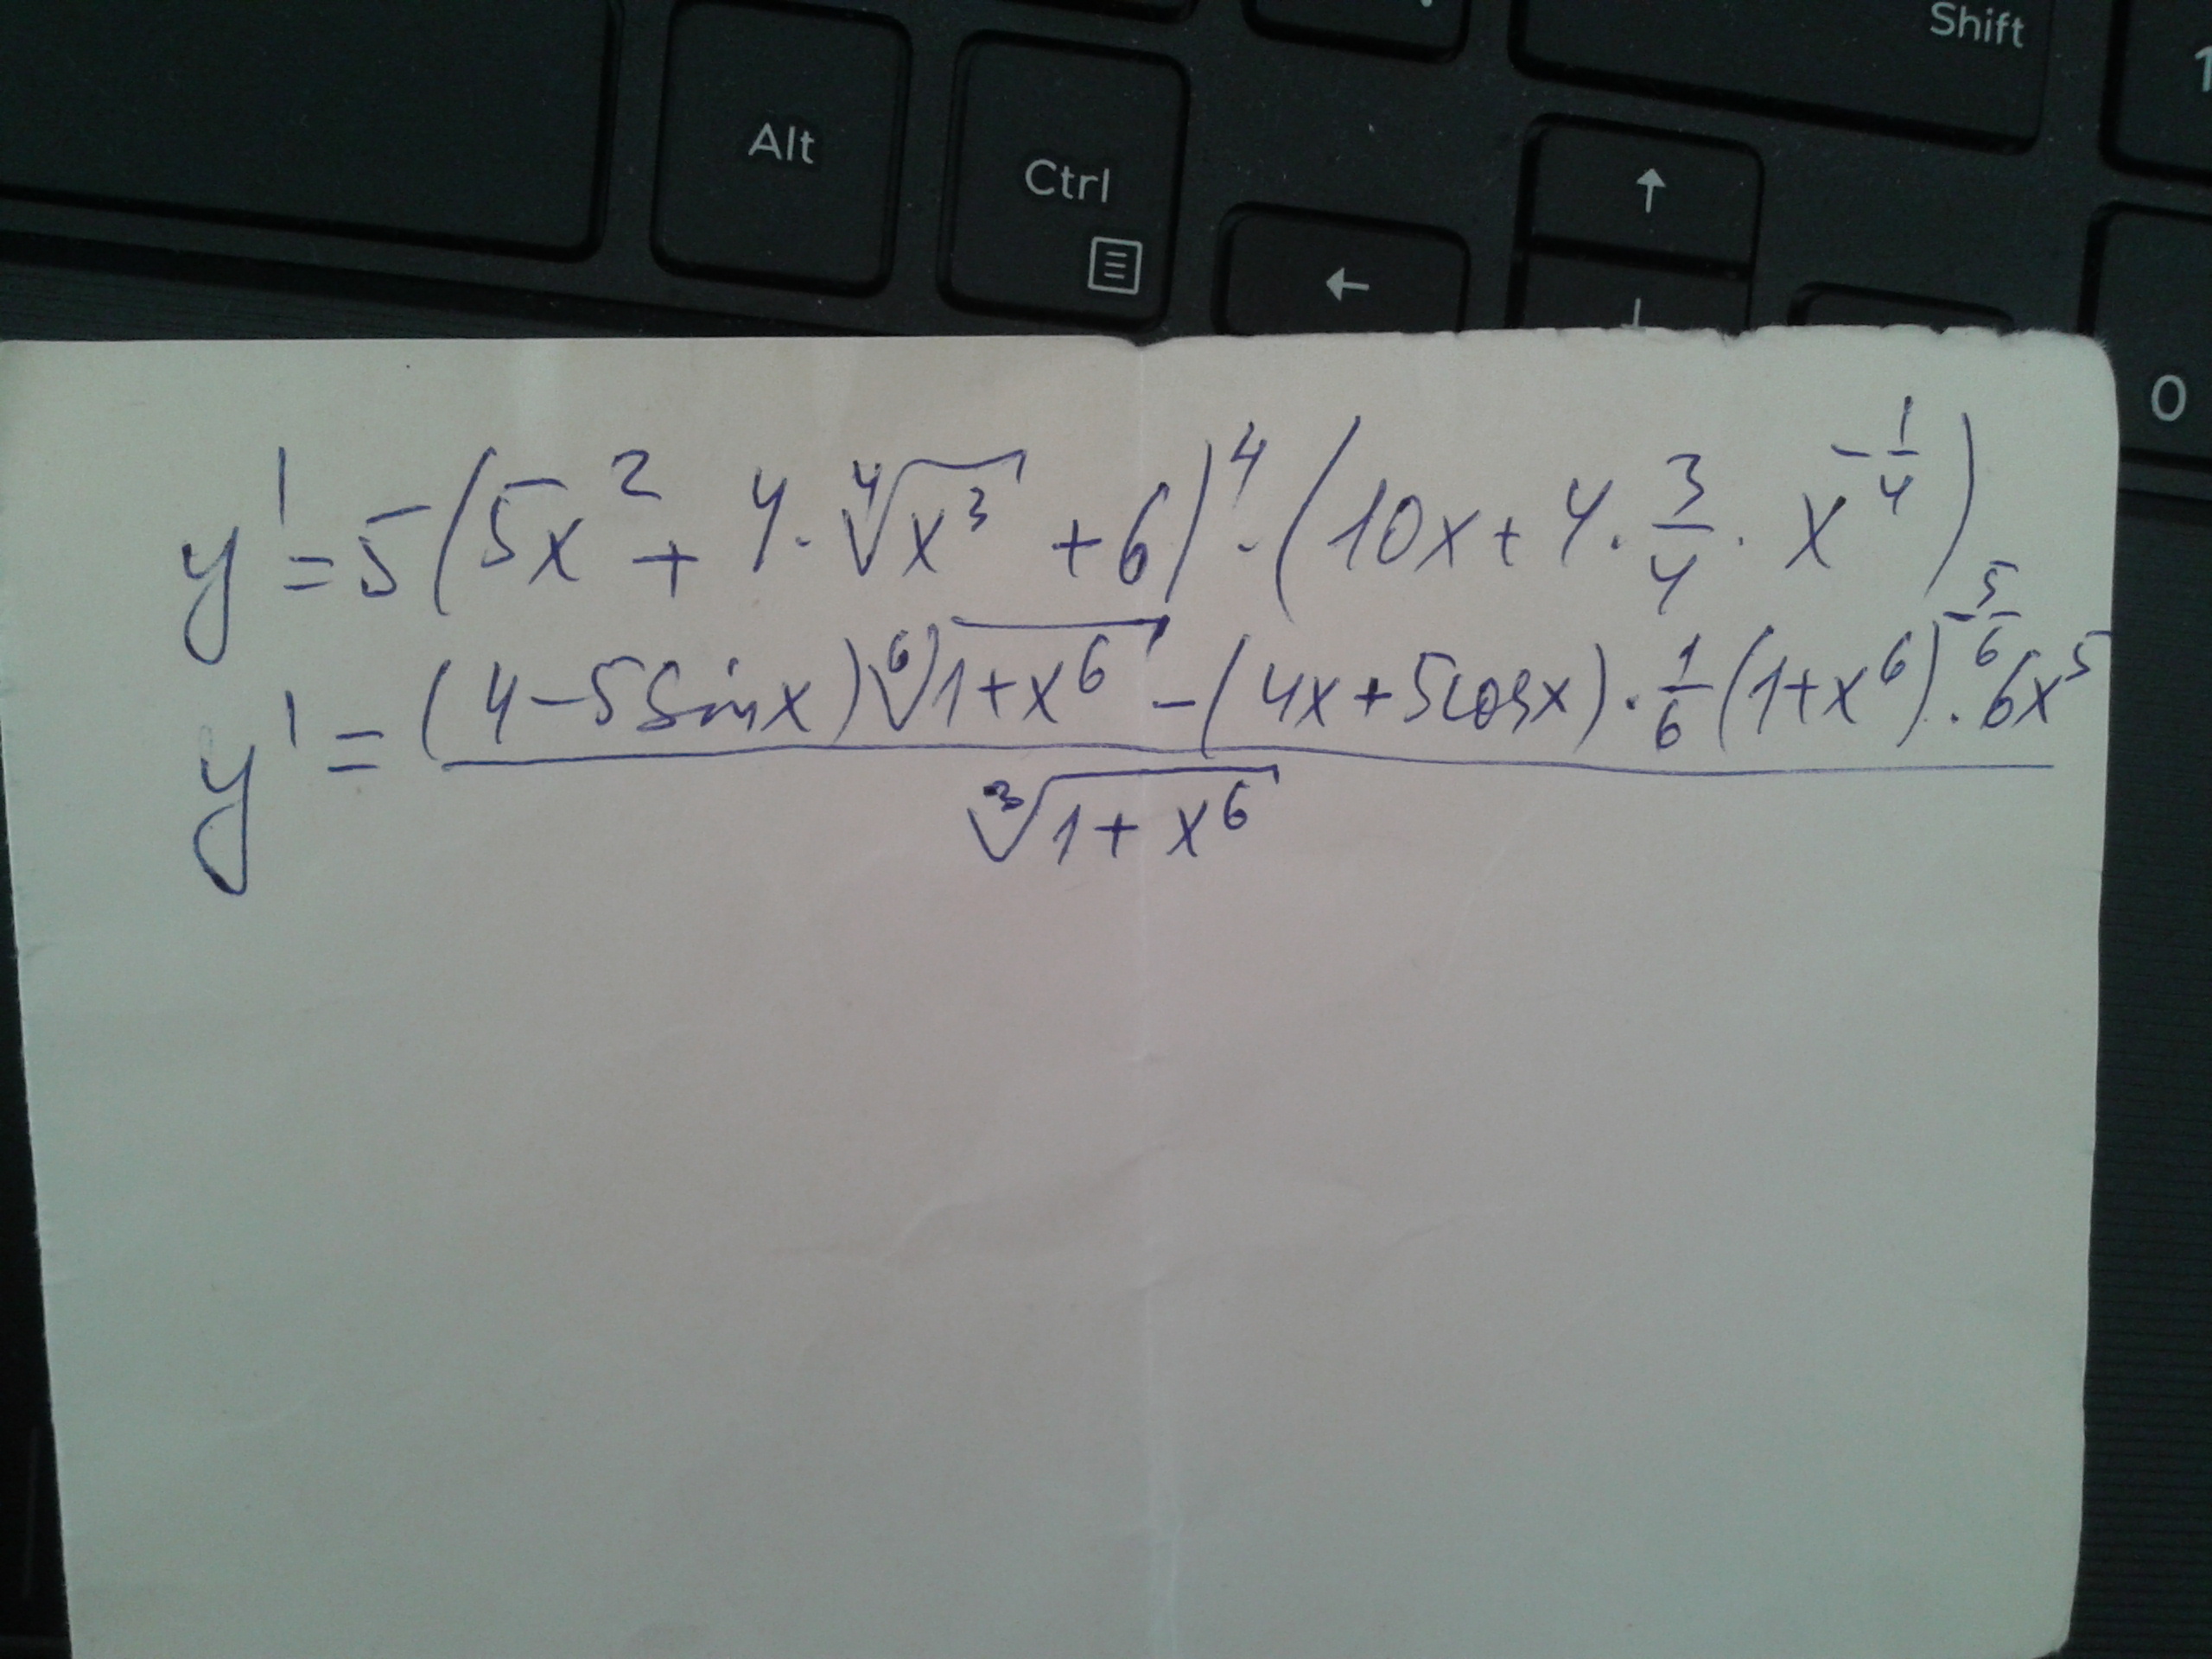 Shift
1
Alt
Ctrl
↑
←
↓
0
y' = 5(5x² + 4·∜(x³) + 6)⁴ · (10x + 4 · 3/4 · x^(-1/4))
y' = ((4 - 5 sin x) ⁶√(1+x⁶) - (4x + 5 cos x) · 1/6 (1+x⁶)^(-5/6) · 6x⁵) / ∛(1+x⁶)